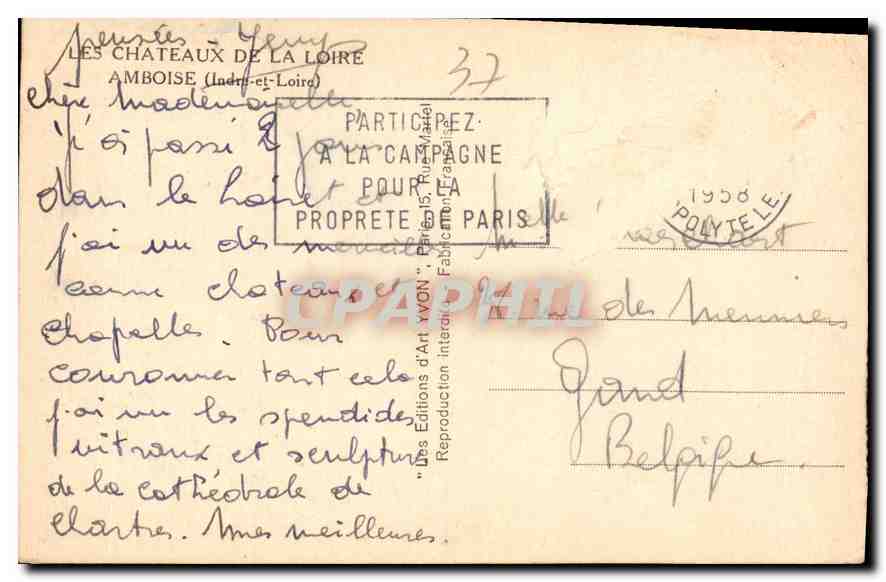 pensées - Jenny
LES CHATEAUX DE LA LOIRE
AMBOISE (Indre-et-Loire)
37
Chère Mademoiselle
j'ai passé 2 jours
dans le Loiret et
j'ai vu des
comme chateaux et
chapelles. Pour
couronner tout cela
j'ai vu les spendides
vitraux et sculpture
de la cathédrale de
Chartres. Mes meilleures.
PARTICIPEZ
A LA CAMPAGNE
POUR LA
PROPRETE DE PARIS
"Les Editions d'Art YVON", Paris, 15, Rue Martel
Reproduction interdite. Fabrication Française
1958
POLYTELE
Melle
rue des Meuniers
Gand
Belgique.
CPAPHIL